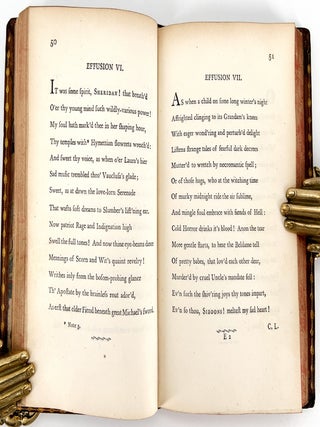 50
EFFUSION VI.
IT was some spirit, SHERIDAN! that breath'd
O'er thy young mind such wildly-various power!
My soul hath mark'd thee in her shaping hour,
Thy temples with* Hymettian flowrets wreath'd:
And sweet thy voice, as when o'er Laura's bier
Sad music trembled thro' Vauclusa's glade;
Sweet, as at dawn the love-lorn Serenade
That wafts soft dreams to Slumber's list'ning ear.
Now patriot Rage and Indignation high
Swell the full tones! And now thine eye-beams dance
Meanings of Scorn and Wit's quaint revelry!
Writhes inly from the bosom-probing glance
Th' Apostate by the brainless rout ador'd,
As erst that elder Fiend beneath great Michael's sword.
* Note 3.
51
EFFUSION VII.
AS when a child on some long winter's night
Affrighted clinging to its Grandam's knees
With eager wond'ring and perturb'd delight
Listens strange tales of fearful dark decrees
Mutter'd to wretch by necromantic spell;
Or of those hags, who at the witching time
Of murky midnight ride the air sublime,
And mingle foul embrace with fiends of Hell:
Cold Horror drinks it's blood! Anon the tear
More gentle starts, to hear the Beldame tell
Of pretty babes, that lov'd each other dear,
Murder'd by cruel Uncle's mandate fell:
Ev'n such the shiv'ring joys thy tones impart,
Ev'n so thou, SIDDONS! meltest my sad heart!
C. L.
E 2